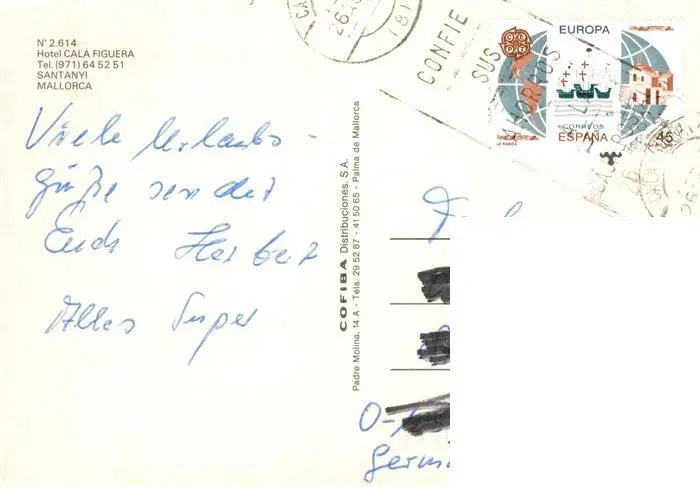 N° 2.614
Hotel CALA FIGUERA
Tel. (971) 64 52 51
SANTANYI
MALLORCA
Viele Urlaubs-
grüße sendet
Euch Herbert
Alles Super
COFIBA Distribuciones, S.A.
Padre Molina, 14 A - Tels. 29 52 87 - 41 50 65 - Palma de Mallorca
CONFIE
SUS
AHORROS
EUROPA
CEPT
CORREOS
ESPAÑA
45
LA RABIDA
O-
Germ